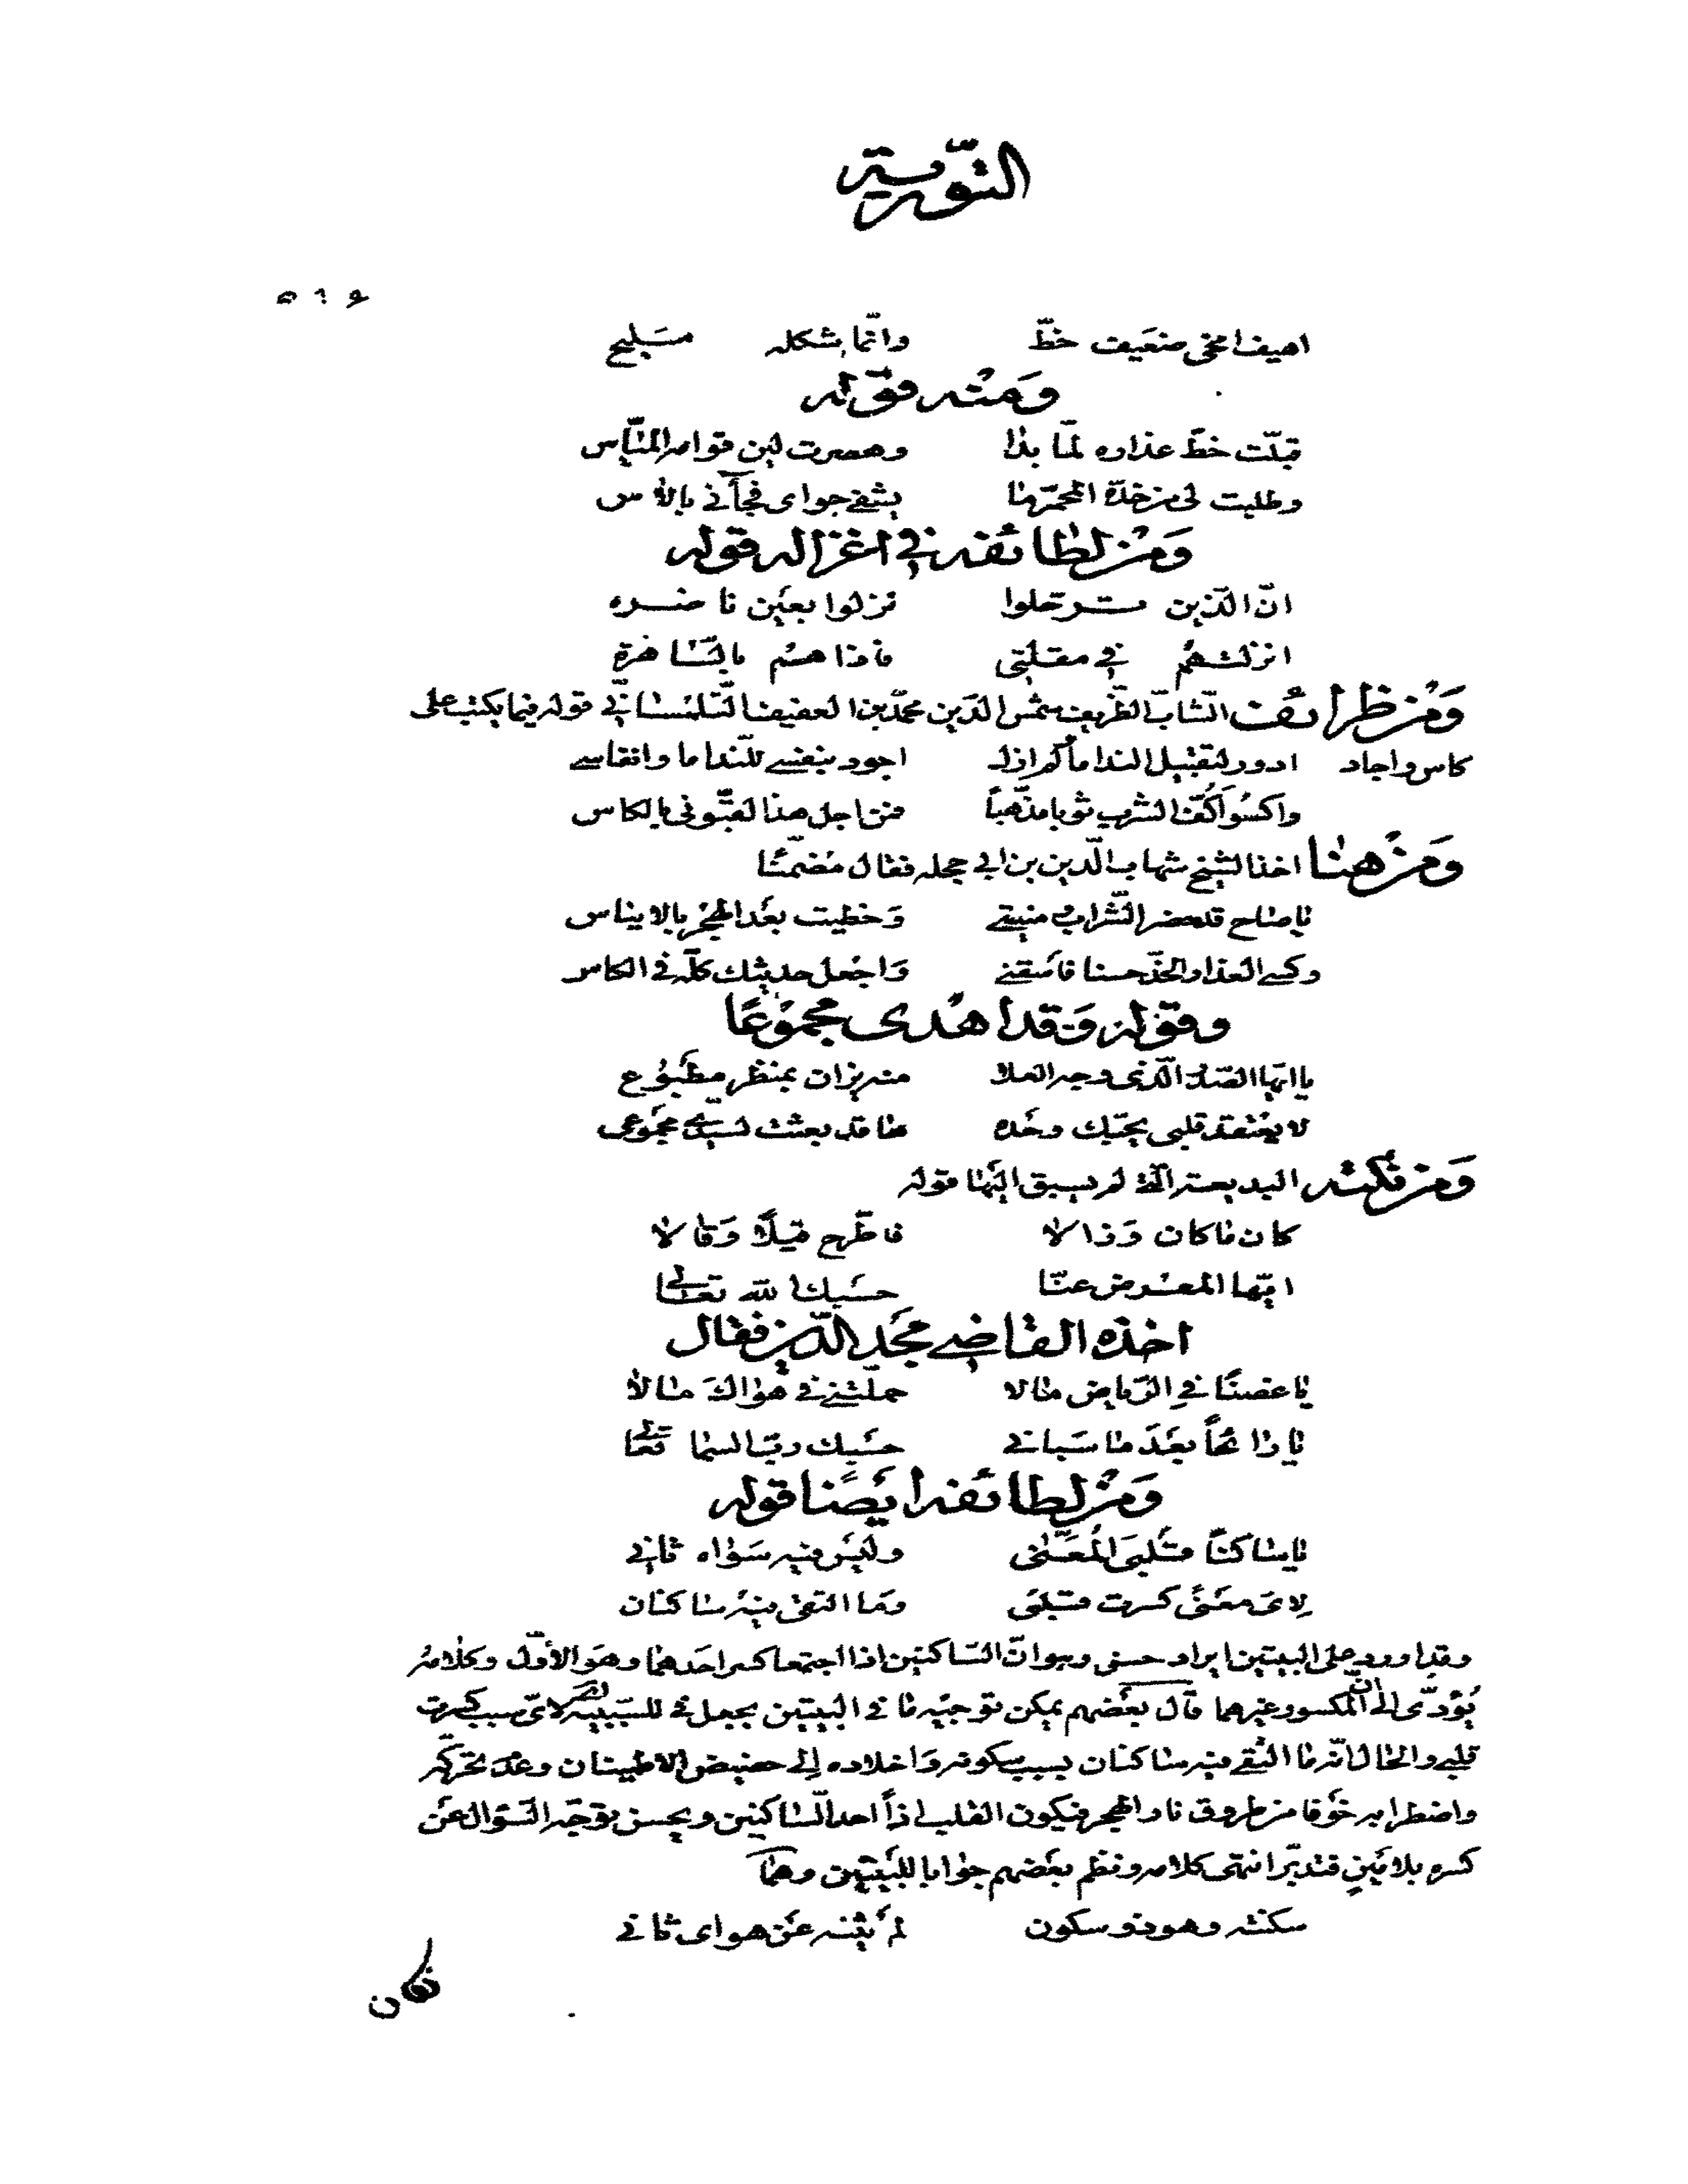 التورية
اهيف اضحى ضعيف خطّ وانّما شكله مَليح
وَمنْه قوله
قبّلت خطّ عذاره لمّا بدا وهصرت لين قوامه الميّاس
وطلبت لى من خدّه المحمرّ ما يشفى جواى فجآنى بالاس
وَمنْ لطائفه فى اغزاله قوله
انّ الّذين ترحلوا نزلوا بعَين ناضره
انزلتهُم فى مقلتى فاذا همُ بالسّاهرة
وَمنْ ظرائف الشّابّ الظّريف شمس الدّين محمّد بن العفيف التّلمسانّى قوله فيما يكتب على
كاس واجاد ادور لتقبيل النداما ولم ازل اجود بنفسى للنّداما وانفاسى
واكسُو اَكُفّ الشرب ثوبا مذّهباً فمن اجل هذا لقبّونى بالكاس
وَمنْ هنا اخذ الشيخ شهاب الدّين بن ابى حجله فقال مُضمّنًا
ياصاح قد حضر الشّراب ومنيتى وَحظيت بعَد الهجْر بالايناس
وكسى العذار الخدّ حسنا فاَسقنى وَاجْعل حديثك كلّه فى الكاس
وقوله وَقد اهْدى مجموُعًا
يا ايّها الصّدر الّذى وجه العلا منه يزان بمنظر مطَبُوع
لا يعْتقد قلبى بحبّك وحَده ها قد بعثت لسيّدى مجَموُعى
وَمن نكته البديعة الّتى لم يسبق اليْها قوله
كان ما كان وَزالا فاطّرح قيلًا وَقالا
ايّها المعْرض عنّا حسَبك الله تعَالى
اخذه القاضى مجَد الدّين فقال
يا غصنًا فى الرّياض مالا حملّتنى فى هواكَ مالا
يا رائحاً بعَدَ ما سَبانى حسَبك ربّ السما تعَالى
وَمنْ لطائفه اَيضًا قوله
يا ساكنًا قلَبىَ المُعَنّى وليَس فيه سَواه ثانى
لاىّ معَنًى كسرت قلبى وَما التقى فيهْ ساكنان
وقد اورد على البيتين ايراد حسن وهو انّ السّاكنين اذا اجتمعا كسر احَدهما وهَو الأوّل وكلامهُ
يُؤدّى الى انّ المكسور غيرهما قال بعَضهم يمكن توجيْه ما فى البيتين بجعل فى للسّببيّة لاىّ سبب كسرت
قلبى والحال انّه ما التْقى فيه ساكنان بسبب سكونه وَاخلاده إلى حضيض الاطمينان وعدَم تحّركه
واضطرابه خوَفا من طروق نار الهجر فيكون القلب اذاً احد السّاكنين ويحسن توجّه السّؤال عَن
كسره بلا مَينٍ فتدبّر انتهى كلامه ونظم بعَضهم جوابا للبَيتين وهما
سكنته وهو ذو سكون لم يَثنه عَن هواى ثانى
فكان